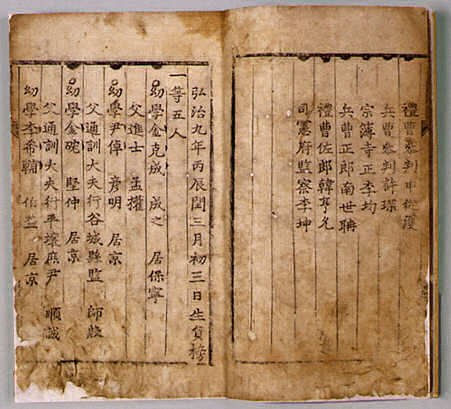 禮曹參判申從濩
兵曹參判許琛
宗簿寺正李均
兵曹正郎南世聃
禮曹佐郎韓亨允
司憲府監察李坤
弘治九年丙辰閏三月初三日生員榜
一等五人
幼學金克成 成之 居保寧
父進士 孟權
幼學尹倬 彦明 居京
父通訓大夫行谷城縣監 師殷
幼學金碗 堅仲 居京
父通訓大夫行平壤庶尹 順誠
幼學李希輔 居京